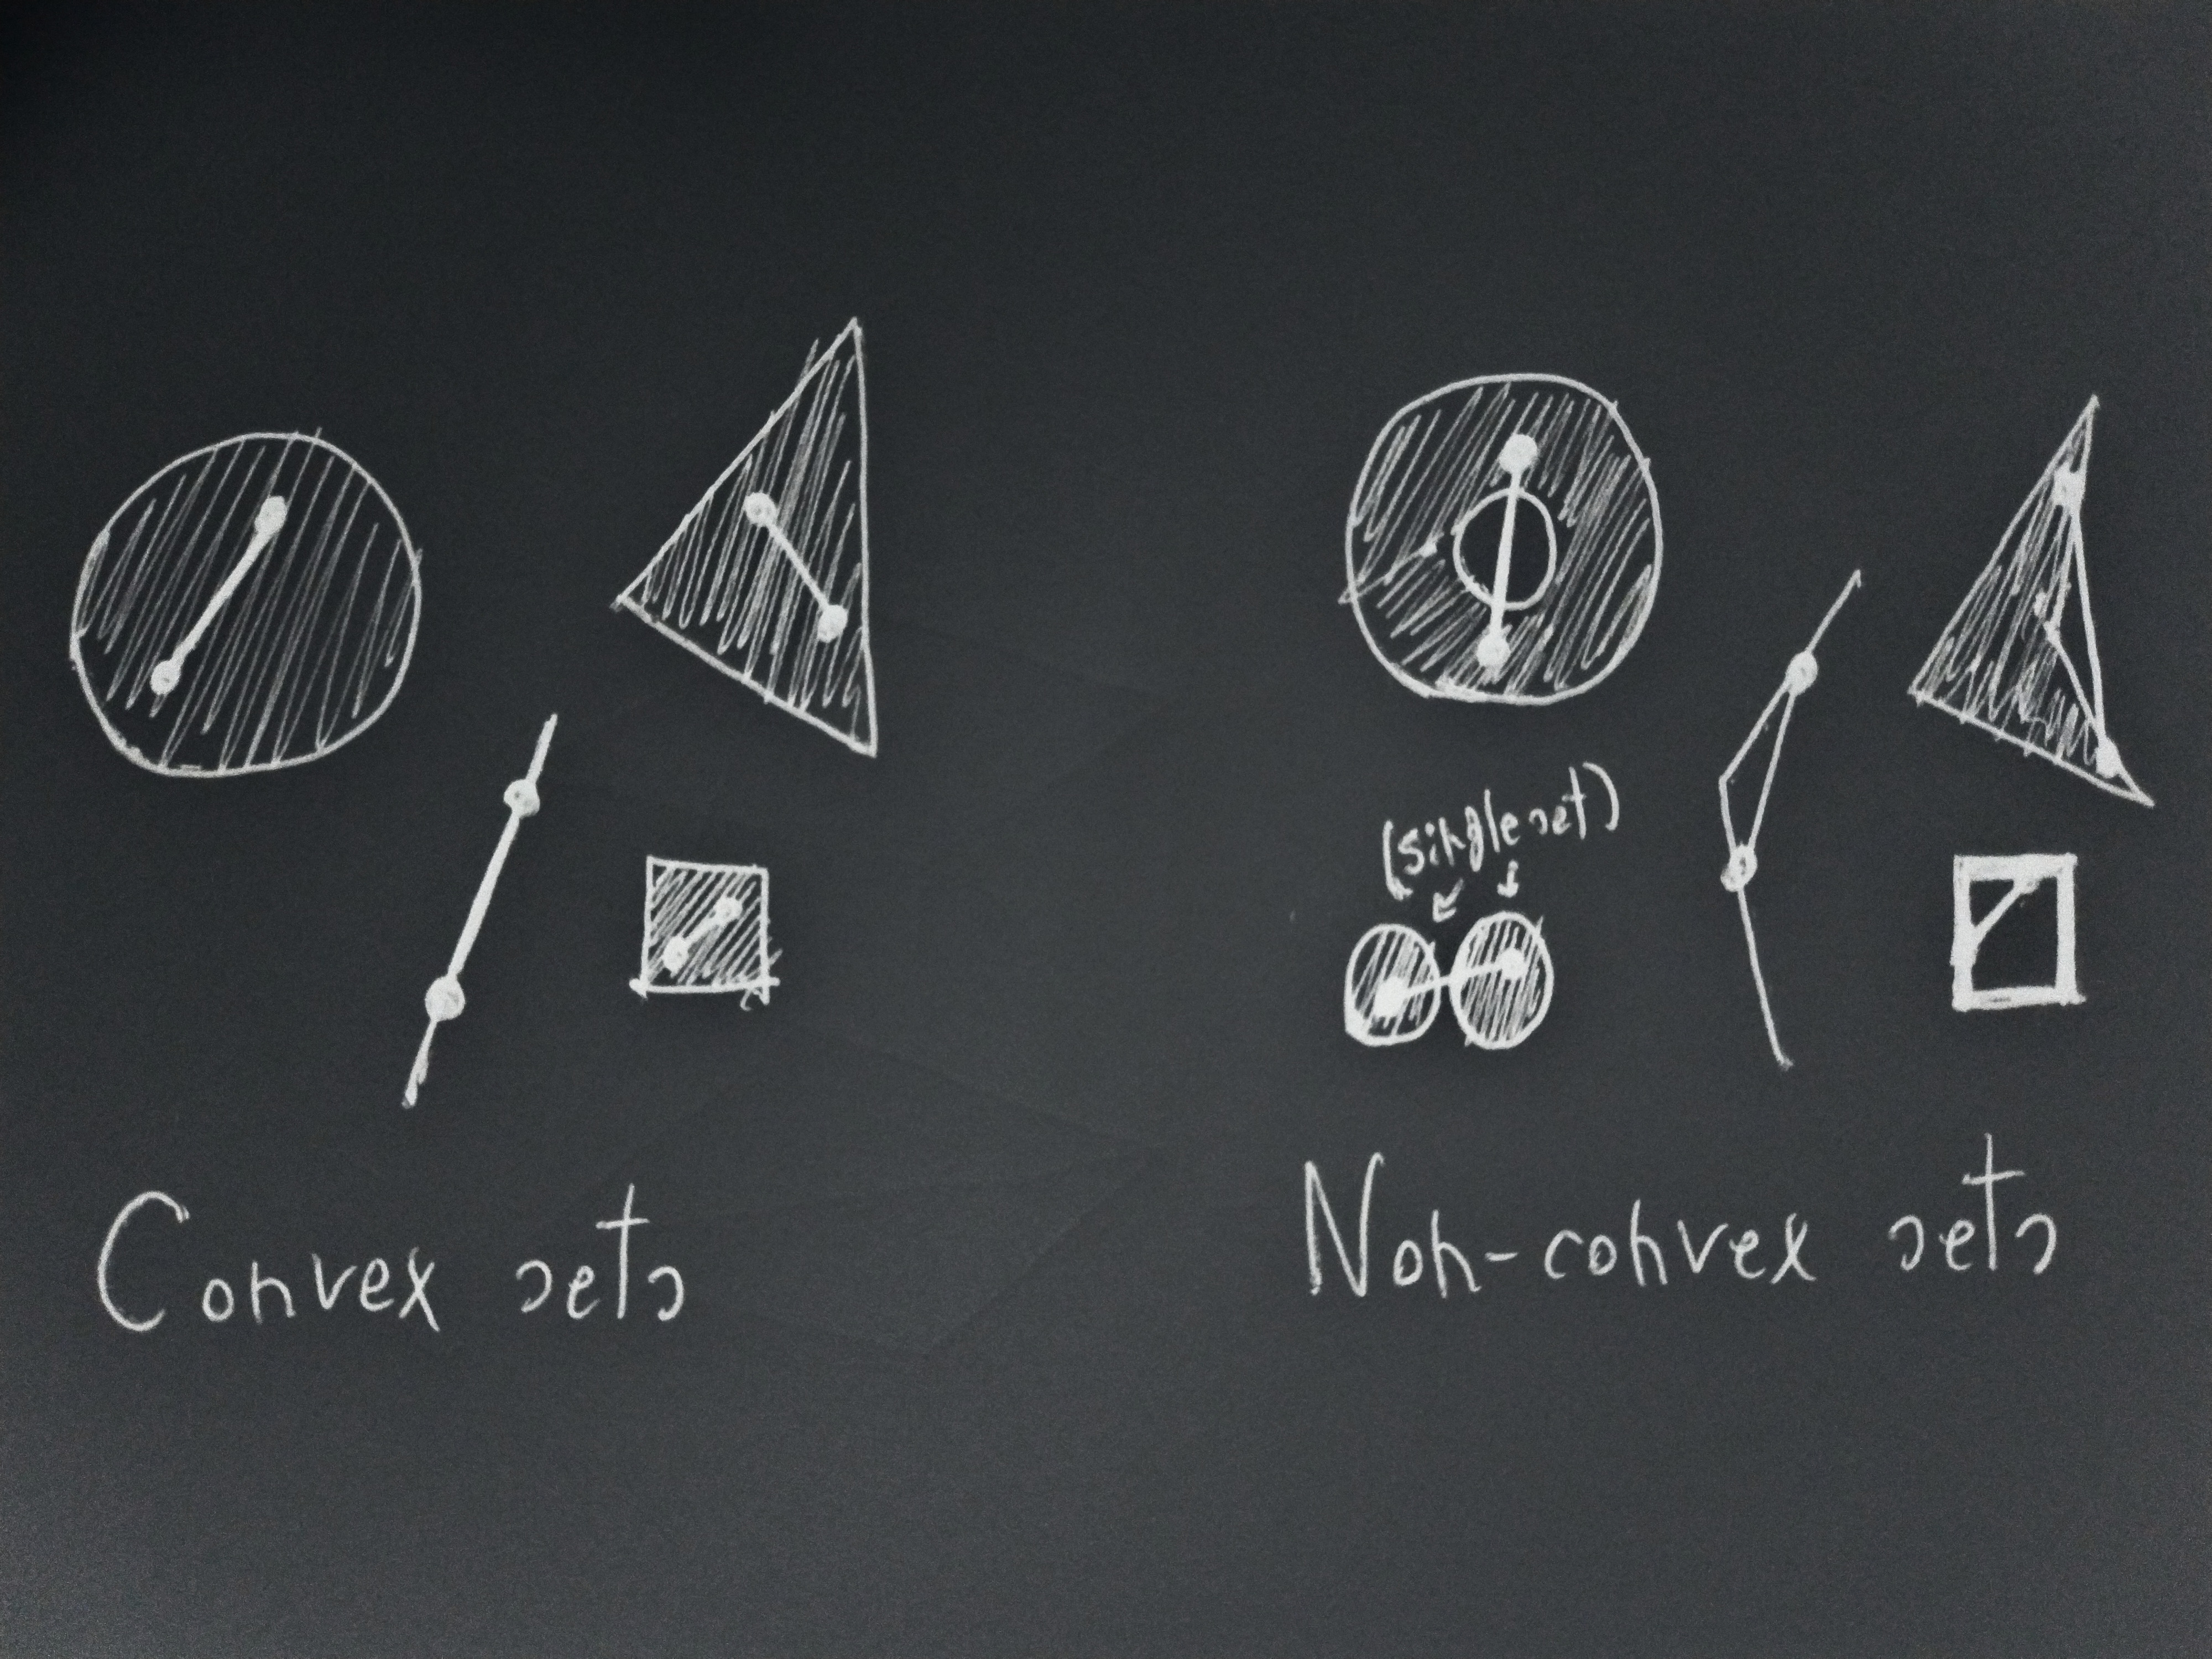 (single set)
Convex sets
Non-convex sets